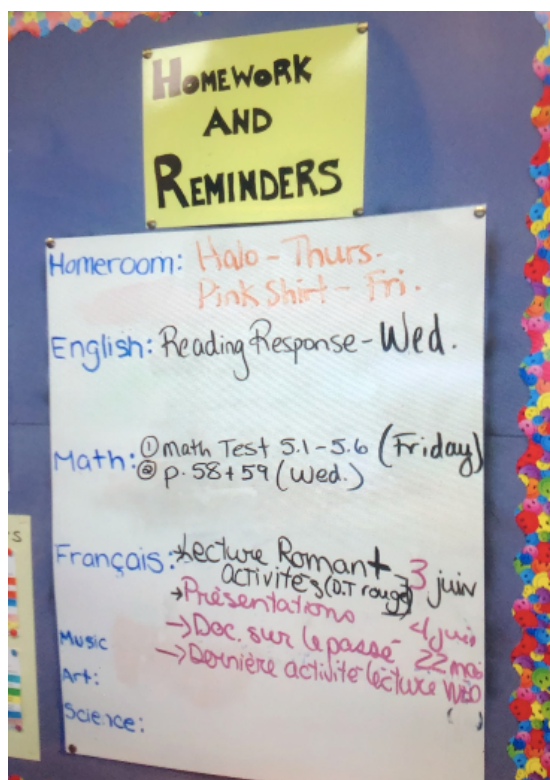 HOMEWORK
AND
REMINDERS
Homeroom: Halo - Thurs.
Pink Shirt - Fri.
English: Reading Response - Wed.
Math: ① Math Test 5.1-5.6 (Friday)
② p. 58+59 (Wed.)
Français: →Lecture Roman + 3 juin
activités (D.T rouge)
→Présentations 4 juin
→Doc. sur le passé 22 mai
→Dernière activité lecture WED
Music
Art:
Science: